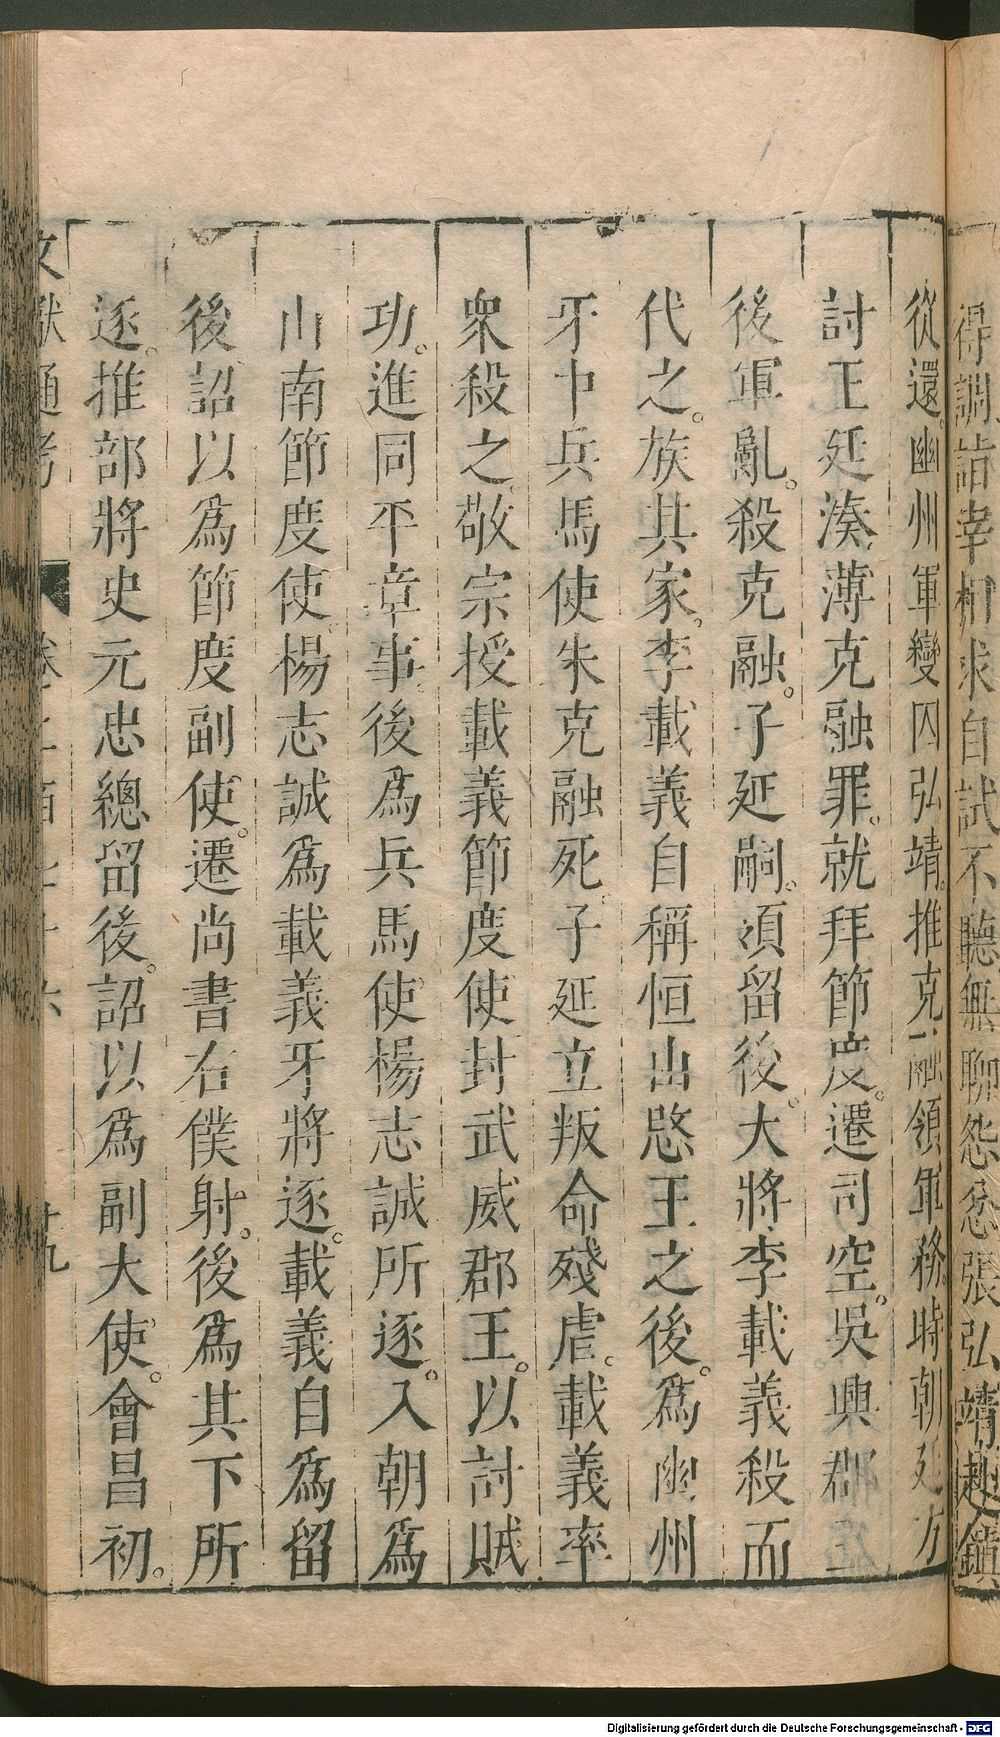 得調詣宰相求自試不聽無聊怨忿張弘靖赴鎮
從還幽州軍變囚弘靖推克融領軍務時朝廷方
討王廷湊薄克融罪。就拜節度。遷司空。吳興郡
後軍亂。殺克融。子延嗣。領留後。大將李載義殺而
代之。族其家。李載義自稱恒山愍王之後。為幽州
牙中兵馬使朱克融死。子延立叛命殘虐。載義率
衆殺之。敬宗授載義節度使封武威郡王。以討賊
功。進同平章事。後爲兵馬使楊志誠所逐。入朝爲
山南節度使楊志誠爲載義牙將逐。載義自爲留
後。詔以爲節度副使。遷尚書右僕射。後爲其下所
逐。推部將史元忠總留後。詔以爲副大使。會昌初。
文獻通考 卷二百七十六 十九
Digitalisierung gefördert durch die Deutsche Forschungsgemeinschaft - DFG